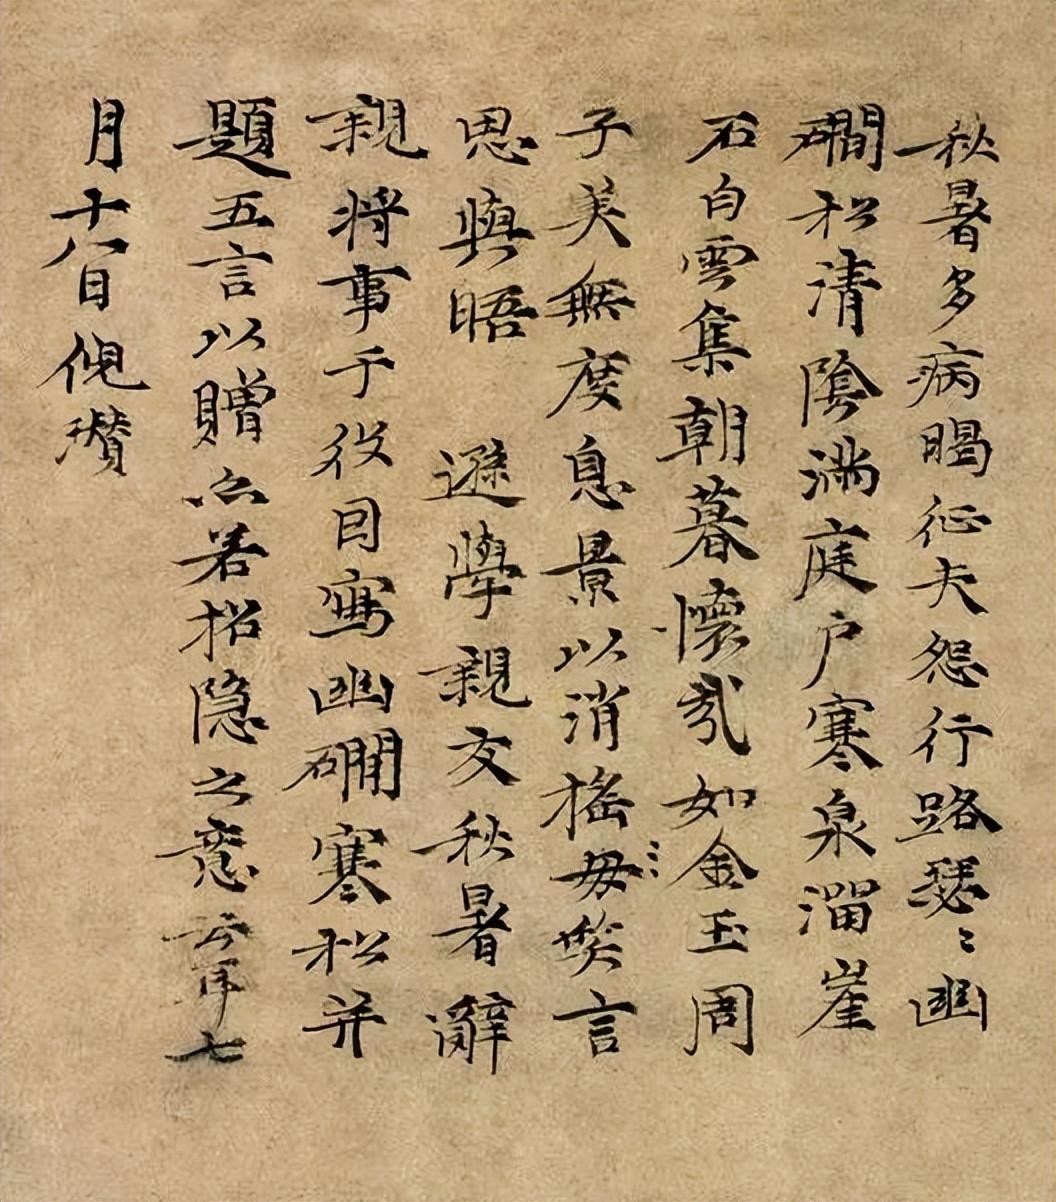 秋暑多病暍征夫怨行路瑟〻幽
磵松清陰滿庭户寒泉溜崖
石白雲集朝暮懷哉如金玉周
子美無度息景以消搖毋笑言
思與晤　遜學親友秋暑辭
親將事于役因寫幽磵寒松并
題五言以贈亦若招隱之意云耳七
月十八日倪瓚